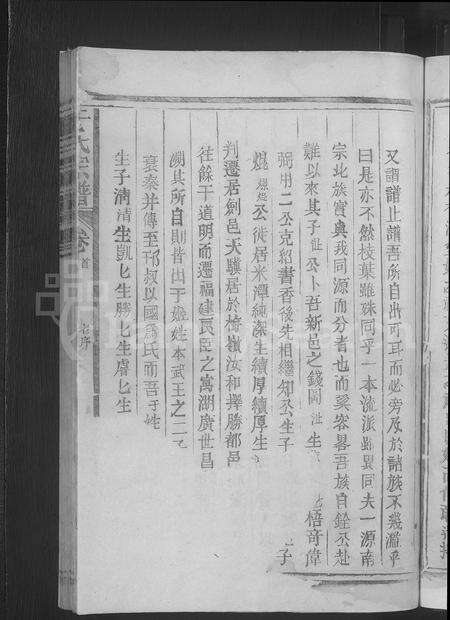 又謂譜止譜吾所自出可耳而必旁及於諸族不幾濫乎
曰是亦不然枝葉雖殊同乎一本流派雖異同夫一源南
宗此族實與我同源而分者也而奚容畧吾族自銓公赴
難以來其子 公卜吾新邑之錢岡 生 梧奇偉
弼用二公克紹書香後先相繼知公生子 子
焜 公徙居米潭純深生續厚續厚生
判遷居劍邑大驥居於椅嶺汝和擇勝都邑
往餘干道明而遷福建良臣之寓湖廣世昌
溯其所自則皆出于姬姓本武王之二子
衰秦并傳至邗叔以國為氏而吾于姓
生子清清生凱匕生勝匕生膚匕生
氏宗譜
卷首